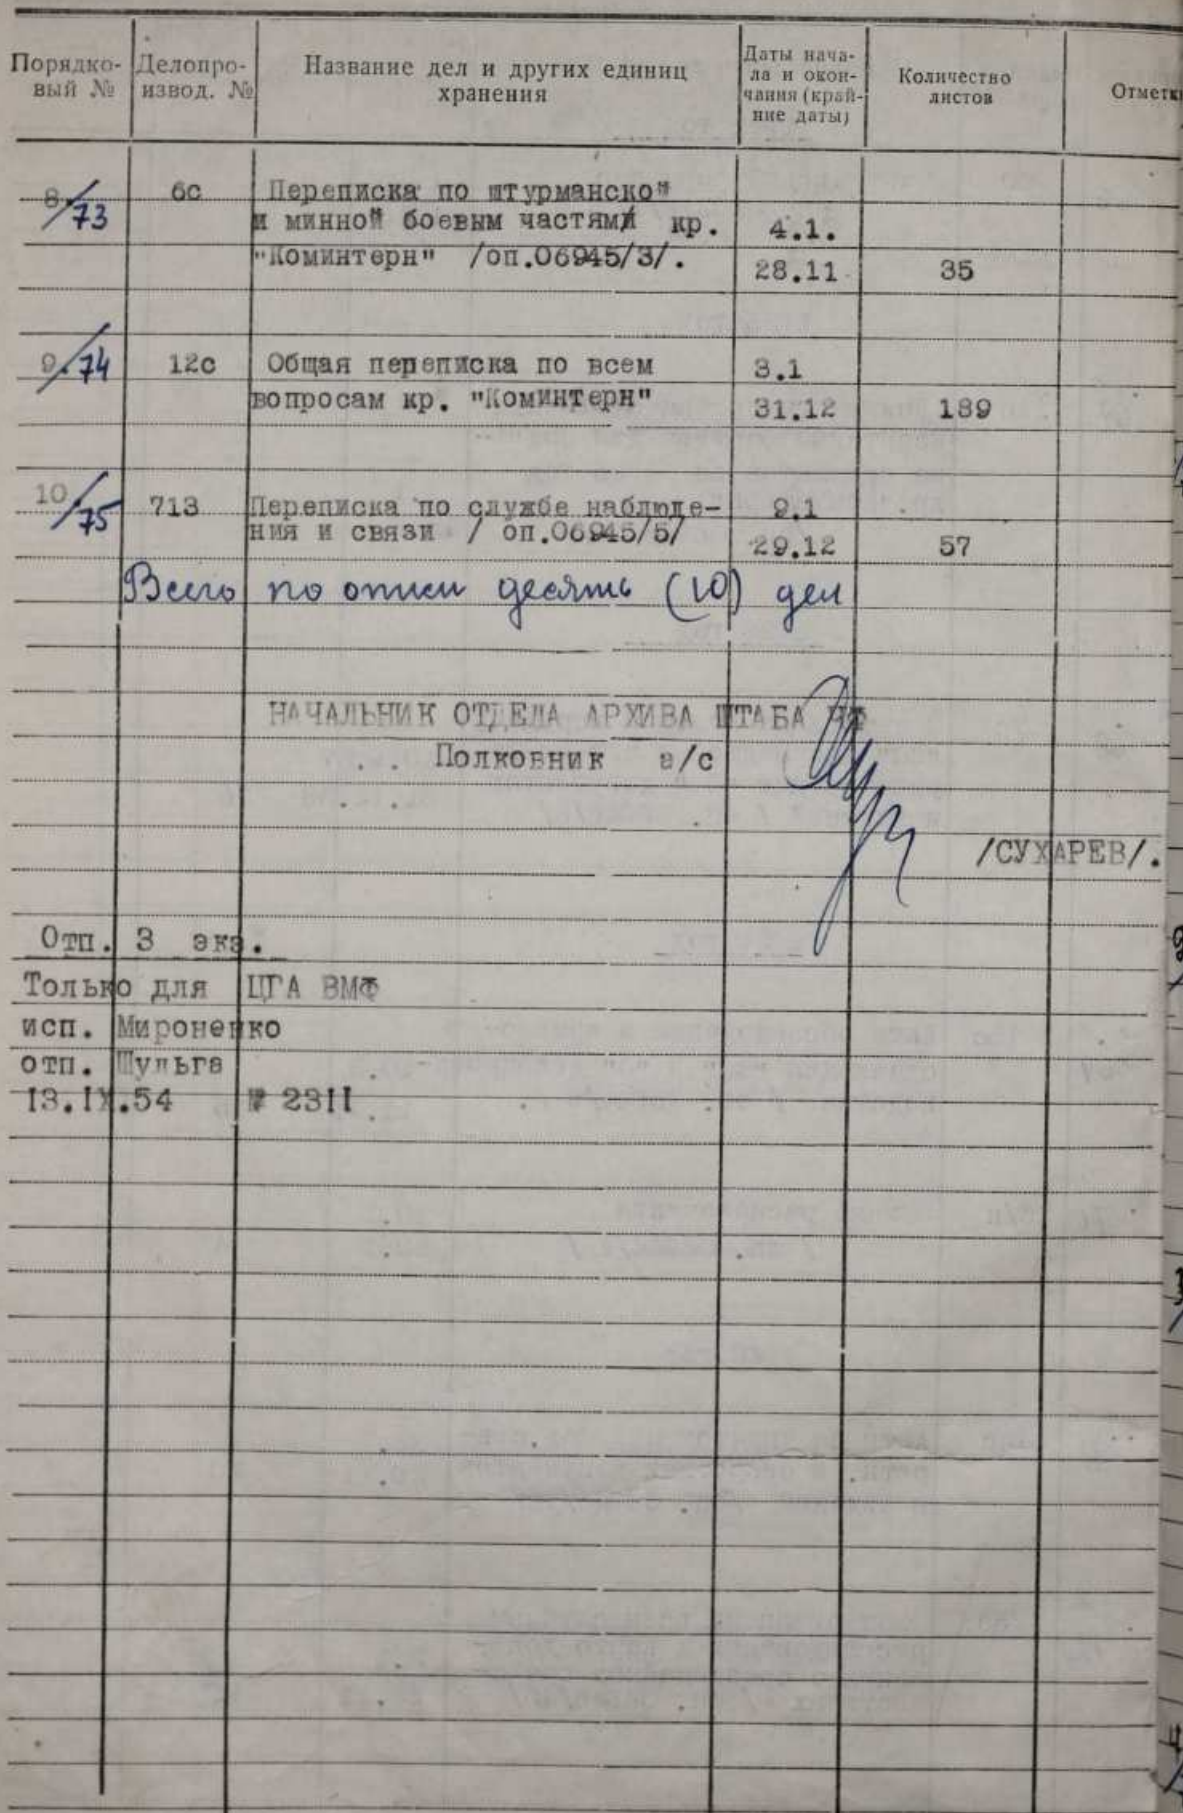 Порядко-вый № Делопро-извод. № Название дел и других единиц хранения Даты нача-ла и окон-чания (край-ние даты) Количество листов Отметк
8. /73 6с Переписка по штурманской
и минной боевым частями кр. 4.1.
"Коминтерн" /оп.06945/3/. 28.11 35
9. /74 12с Общая переписка по всем 3.1
вопросам кр. "Коминтерн" 31.12 189
10 /75 713 Переписка по службе наблюде- 9.1
ния и связи / оп.06945/5/ 29.12 57
Всего по описи десять (10) дел
НАЧАЛЬНИК ОТДЕЛА АРХИВА ШТАБА ЧФ
Полковник а/с
/СУХАРЕВ/.
Отп. 3 экз.
Только для ЦГА ВМФ
исп. Мироненко
отп. Шульга
13.IX.54 № 2311